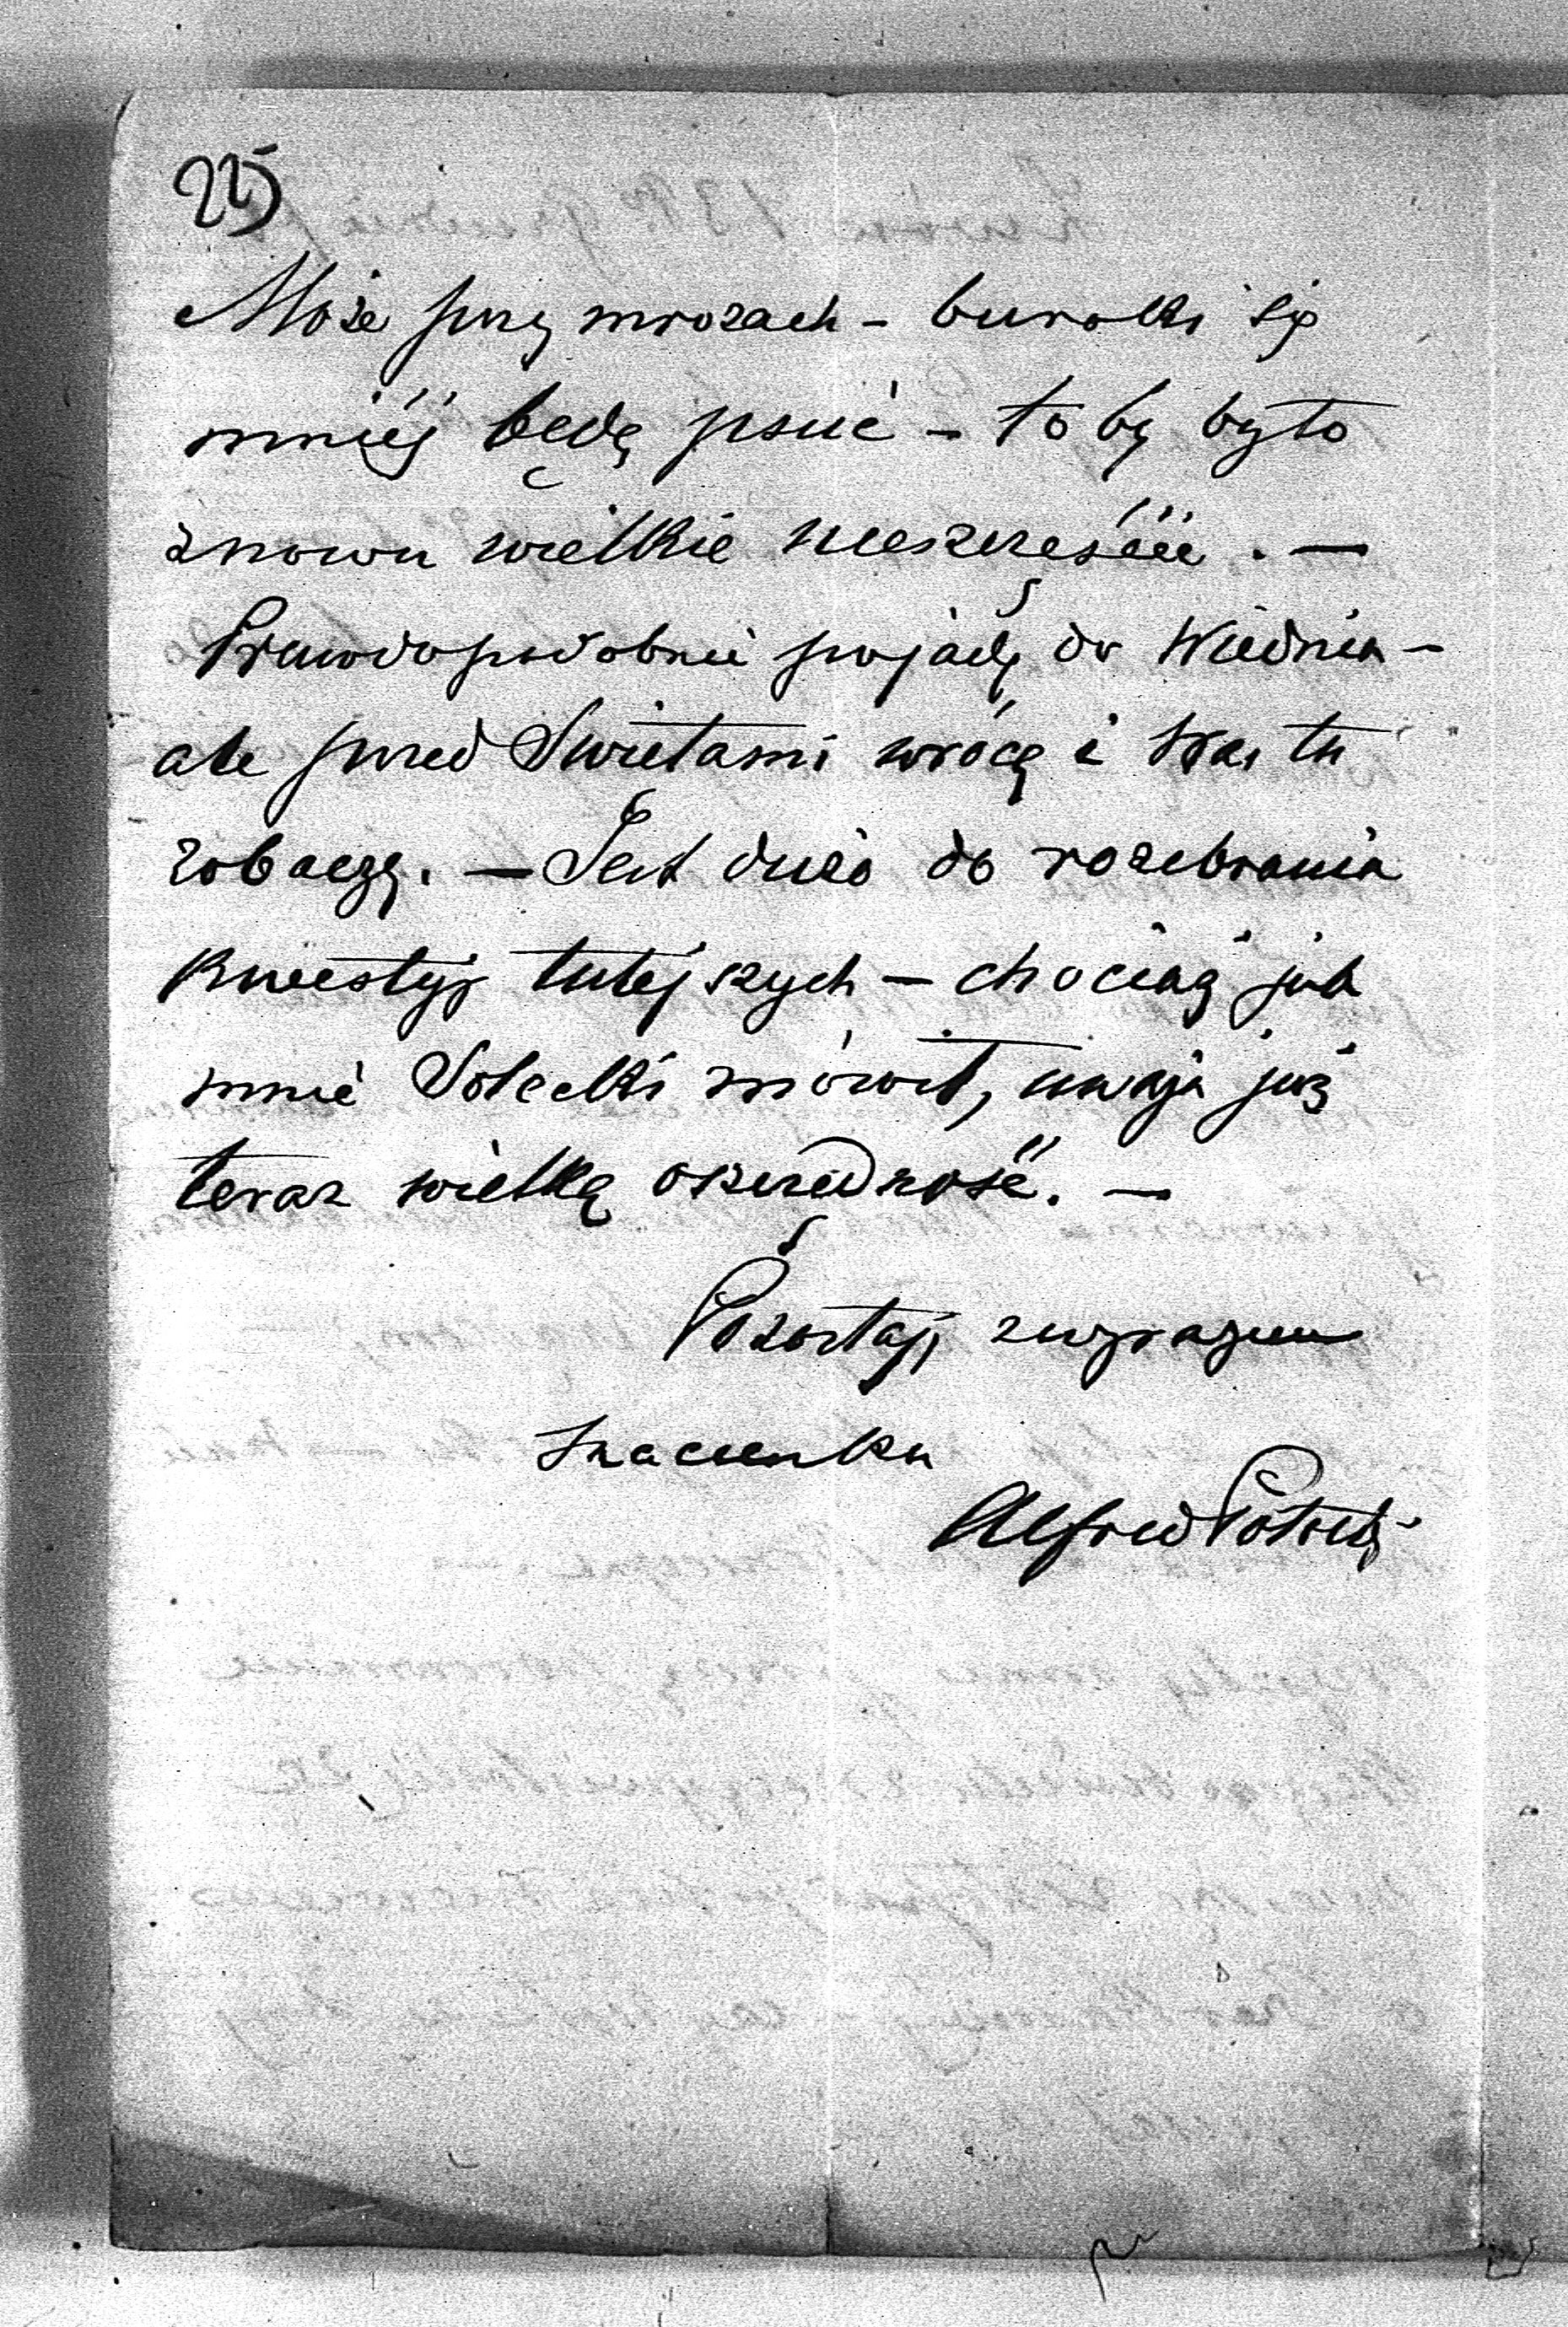 225
Może przy mrozach – buraki się
mniéj będą psuć – to by było
znowu wielkie nieszczęście. —
Prawdopodobnie pojadę do Wiednia –
ale przed Świętami wrócę i Was tu
zobaczę. — Jest dużo do rozebrania
kwestyj tutejszych – chociaż jak
mnie Solecki mówił, mają już
teraz wielką oszczędność. —
Pozostaję z wyrazem
szacunku
Alfred Potocki